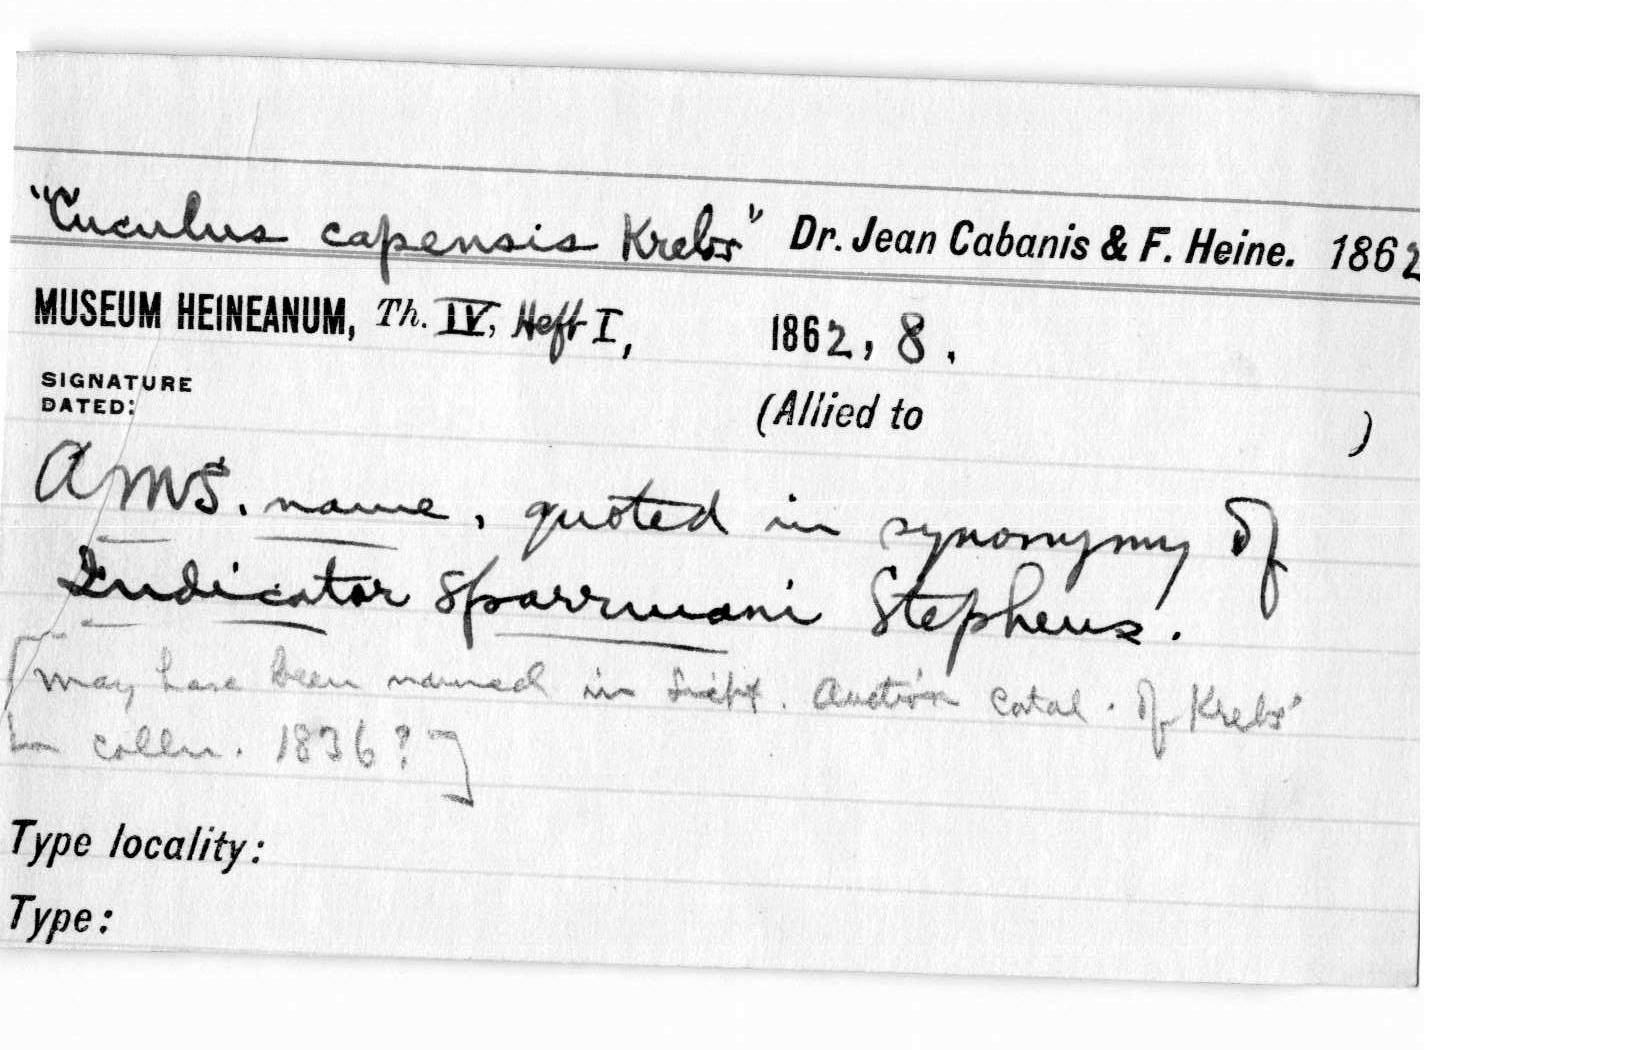 "Cuculus capensis Krebs" Dr. Jean Cabanis & F. Heine. 1862
MUSEUM HEINEANUM, Th. IV, Heft I, 1862, 8.
SIGNATURE
DATED:
(Allied to )
A MS. name, quoted in synonymy of
Indicator Sparrmani Stephens.
[may have been named in . Auction Catal. of Krebs'
colln. 1836?]
Type locality:
Type: